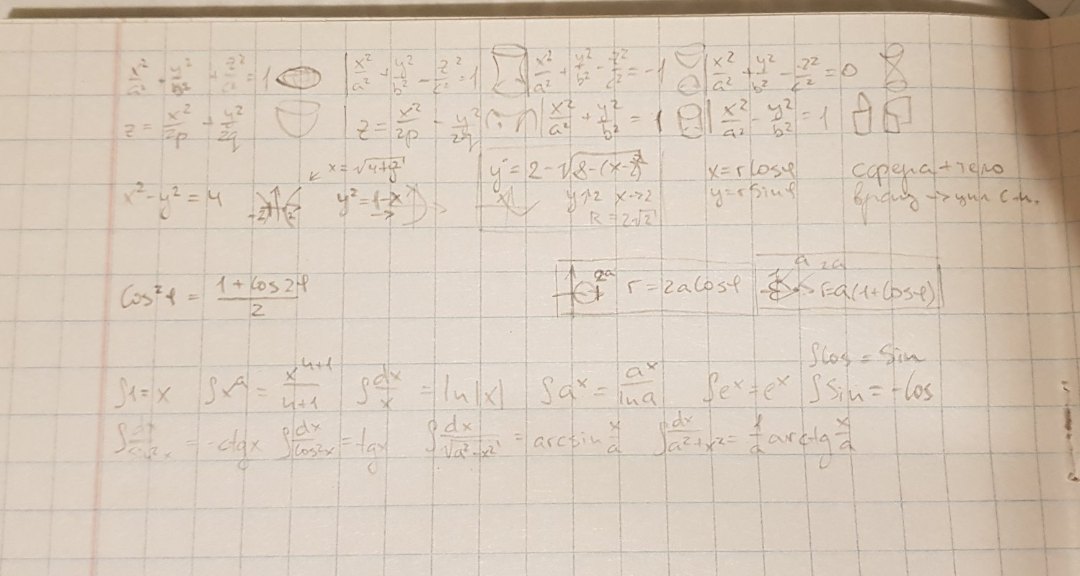 x²/a² + y²/b² + z²/c² = 1 | x²/a² + y²/b² - z²/c² = 1 | x²/a² + y²/b² - z²/c² = -1 | x²/a² + y²/b² - z²/c² = 0
z = x²/2p + y²/2q | z = x²/2p - y²/2q | x²/a² + y²/b² = 1 | x²/a² - y²/b² = 1
x = √(4+y²) y = 2 - √(8-(x-2)²) x = r cos φ сфера + тело
x² - y² = 4 -2 2 y² = 1-x y→2 x→2 y = r sin φ вращ → цил с.к.
R = 2√2
cos²φ = (1 + cos 2φ)/2 2a r = 2a cos φ a 2a r = a(1+cos φ)
∫cos = sin
∫1 = x ∫xⁿ = xⁿ⁺¹/(n+1) ∫dx/x = ln|x| ∫aˣ = aˣ/ln a ∫eˣ = eˣ ∫sin = -cos
∫dx/sin²x = -ctgx ∫dx/cos²x = tgx ∫dx/√(a²-x²) = arcsin x/a ∫dx/(a²+x²) = 1/a arctg x/a